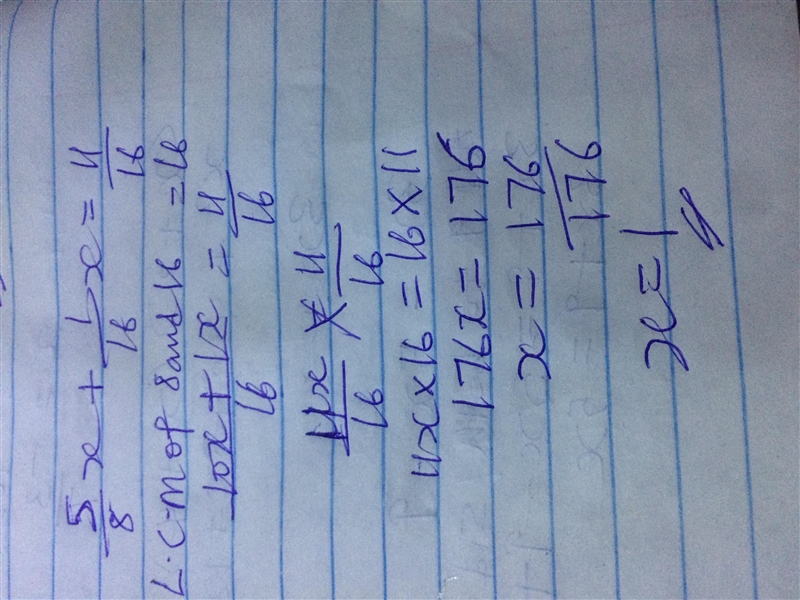 5/8 x + 1/16 x = 11/16
L.C.M of 8 and 16 = 16
10x + 1x / 16 = 11/16
11x/16 = 11/16
11x × 16 = 16 × 11
176x = 176
x = 176/176
x = 1